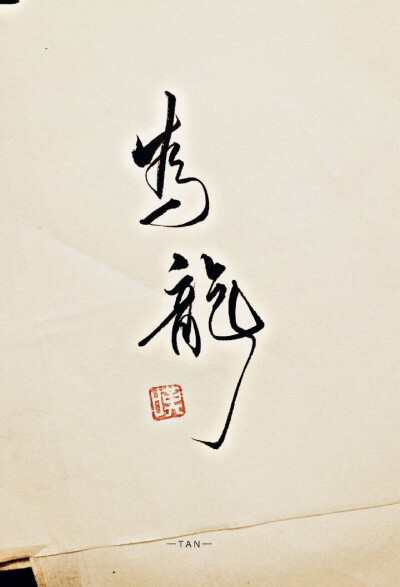 馬龍
—TAN—